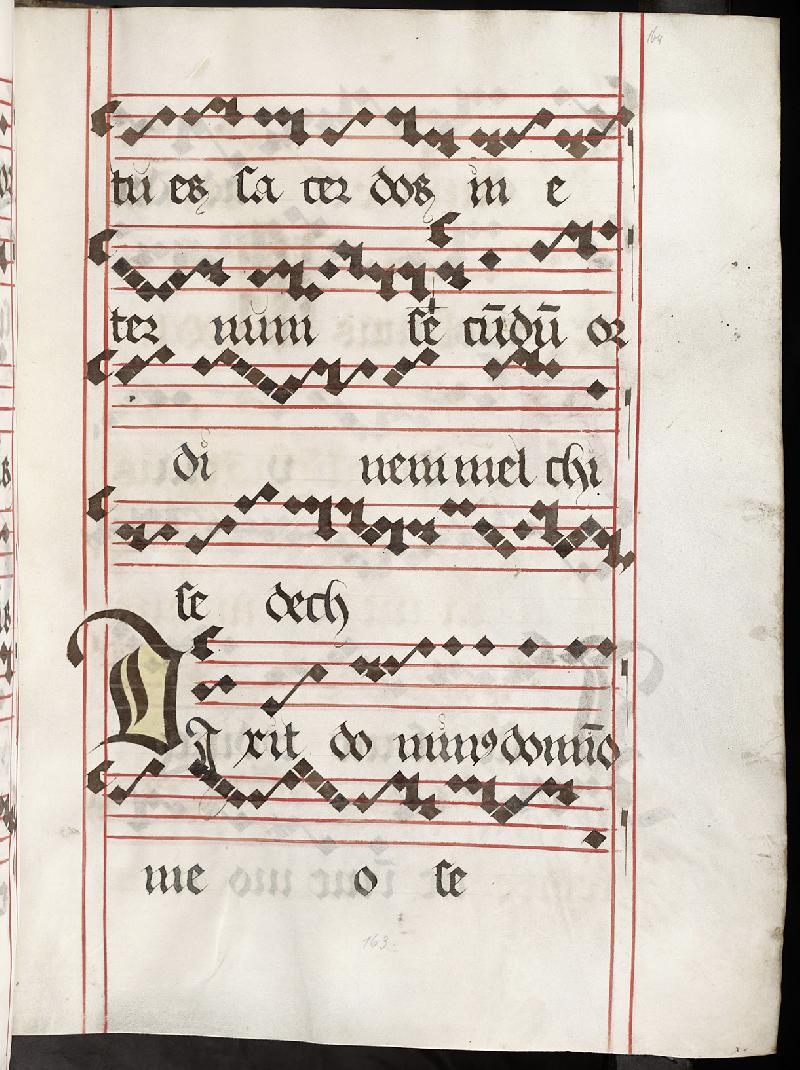 164
tu es sa cer dos in e
ter num se cūdū or
di nem mel chi
se dech
DIxit do minꝰ domīo
me o se
163.